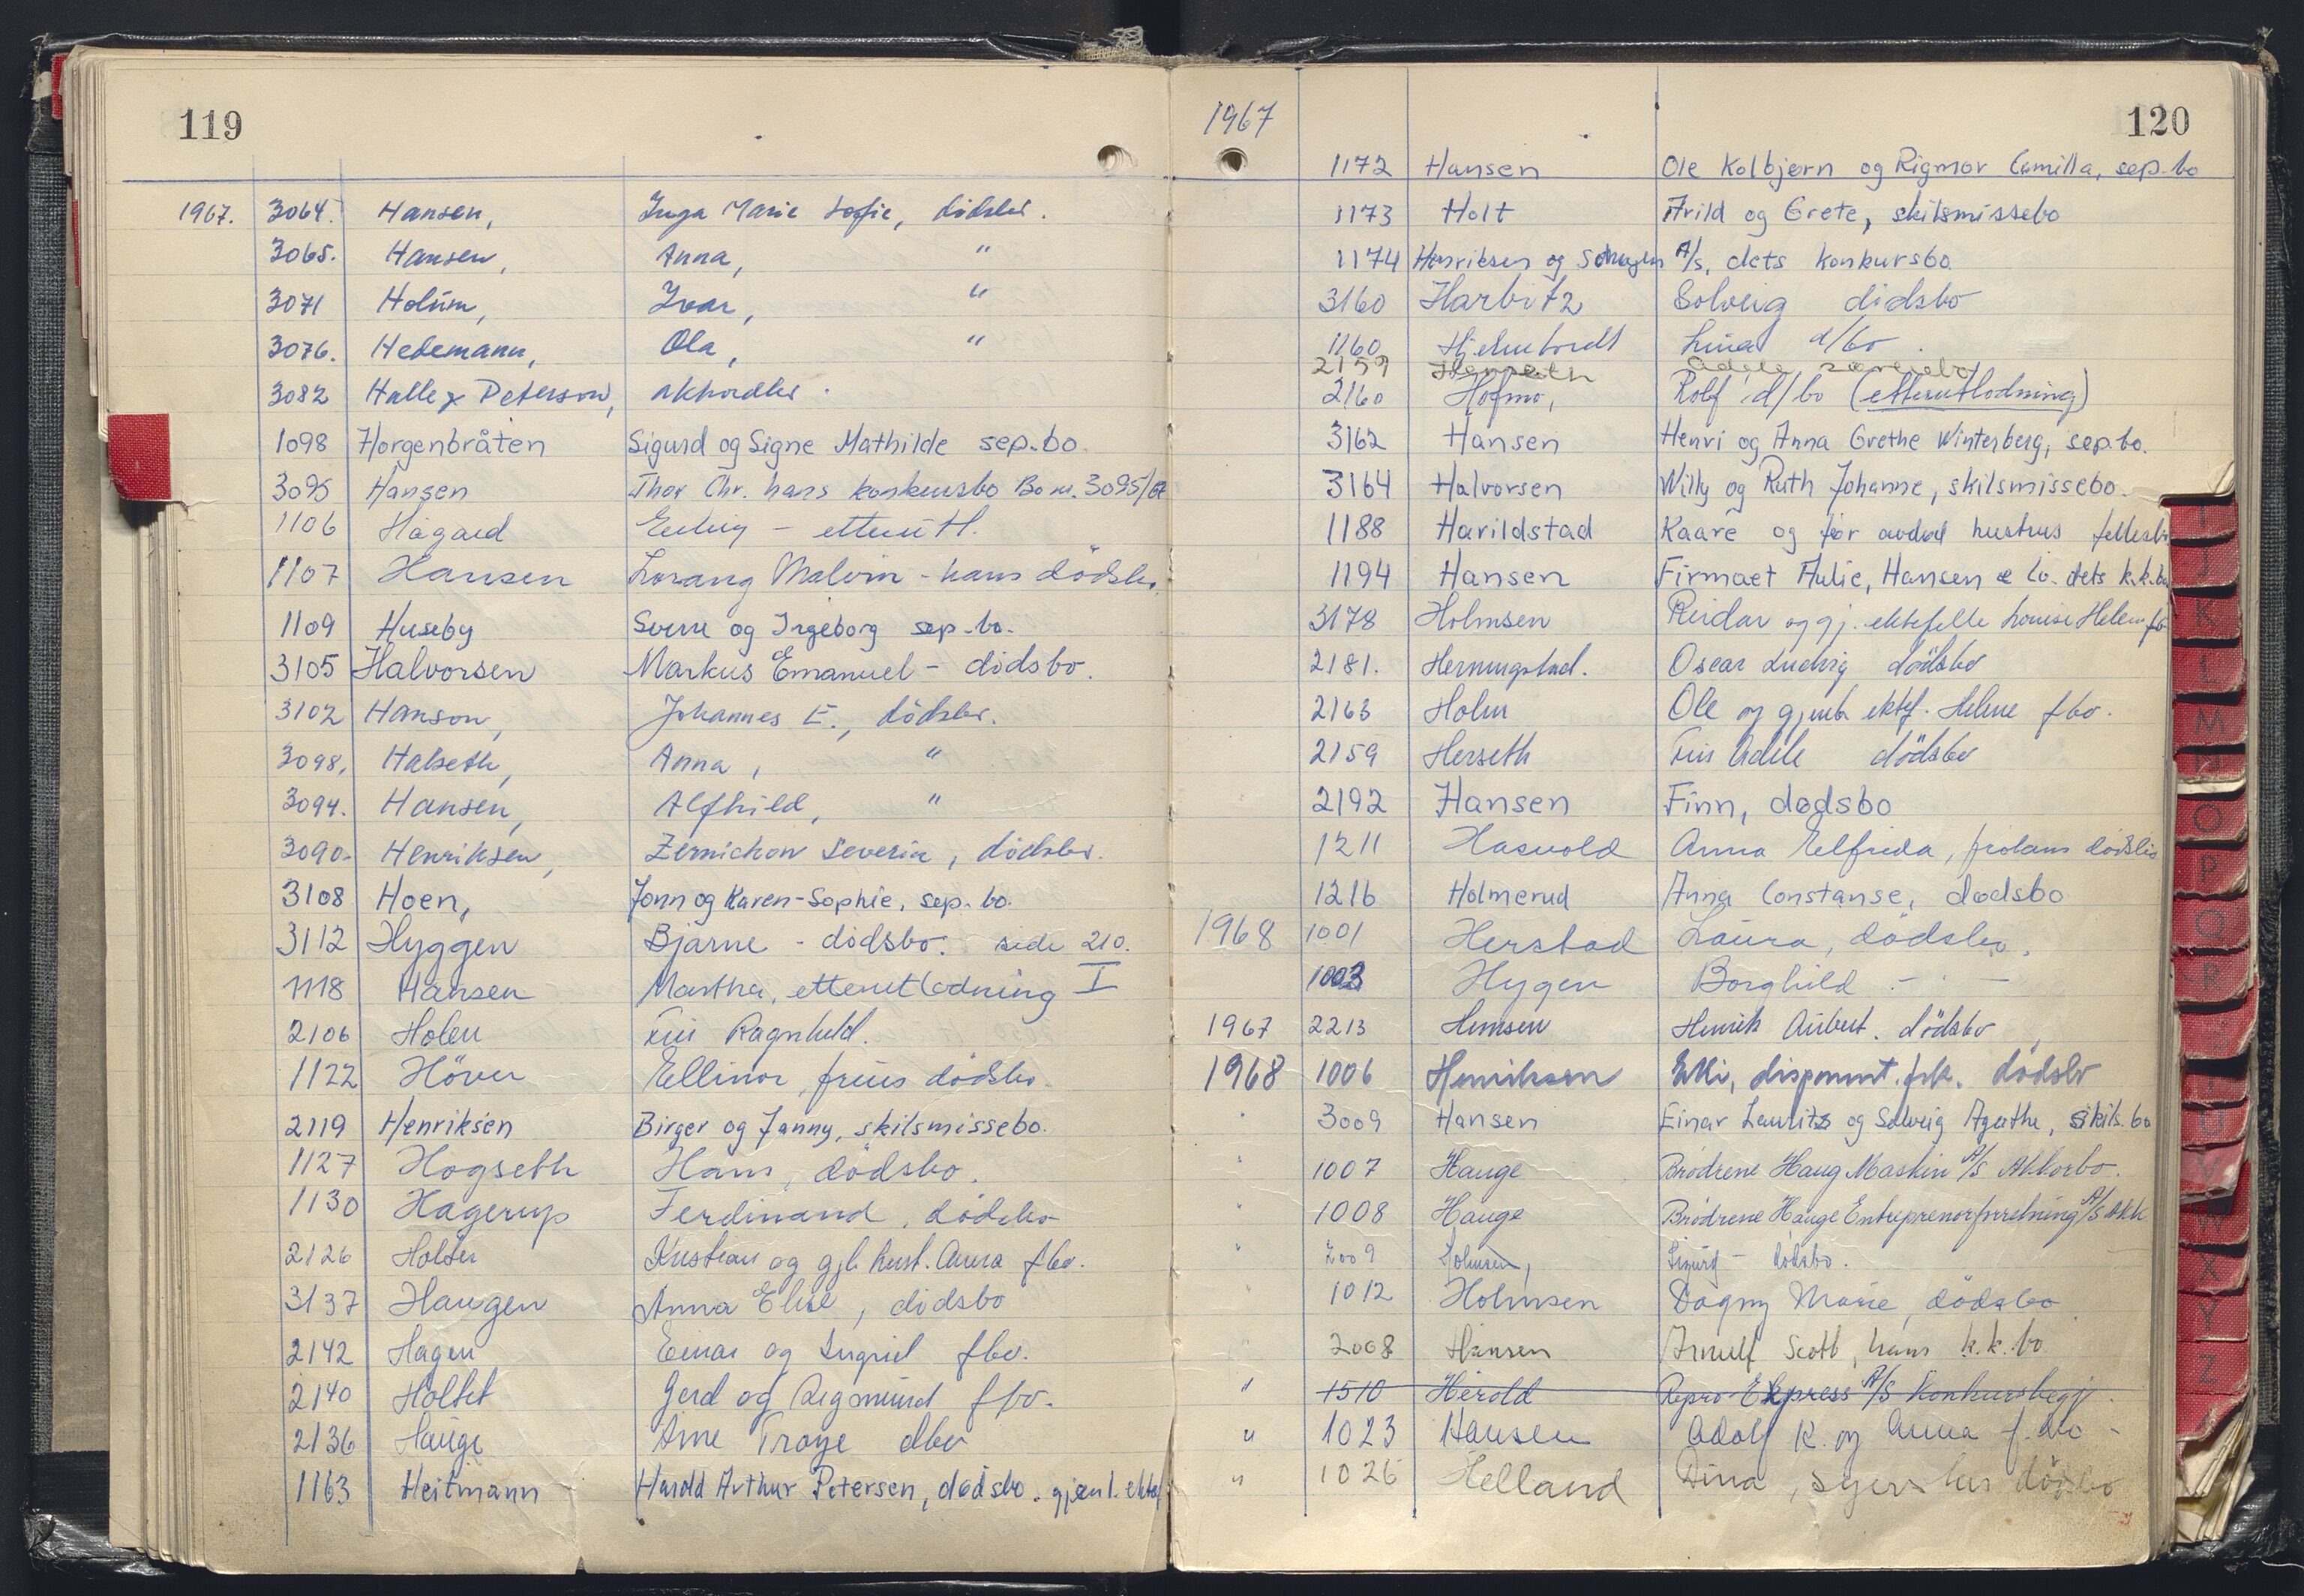 119
1967. 3064. Hansen, Inga Marie Sofie, dödsbo.
3065. Hansen, Anna, "
3071 Holum, Ivar, "
3076. Hedemann, Ola, "
3082 Halle & Peterson, akkordbo.
1098 Horgenbråten Sigurd og Signe Mathilde sep.bo.
3095 Hansen Thor Chr. hans konkursbo Bo nr. 3095/67
1106 Hågård
1107 Hansen Lorang Malvin - hans dödsbo.
1109 Huseby Sverre og Ingeborg sep.bo.
3105 Halvorsen Markus Emanuel - dødsbo.
3102 Hanson, Johannes E., dödsbo.
3098. Halseth, Anna, "
3094. Hansen, Alfhild, "
3090. Henriksen, Severin, dödsbo.
3108 Hoen, Jonn og Karen-Sophie, sep. bo.
3112 Hyggen Bjarne - dødsbo. side 210.
1118 Hansen Martha, etterutlodning I
2106 Holen Fru Ragnhild.
1122 Höver Ellinor, frues dödsbo
2119 Henriksen Birger og Janny, skilsmissebo.
1127 Hogseth Hans, dödsbo.
1130 Hagerup Ferdinand, dödsbo
2126 Holter Kristian og gjl. hust. Anna fbo.
3137 Haugen Anna Elise, dødsbo
2142 Hagen Einar og Ingrid fbo.
2140 Holtet Gerd og Sigmund fbo.
2136 Hauge Arne Troye dbo
1163 Heitmann Harold Arthur Petersen, dødsbo. gjenl. ektef
1967
120
1172 Hansen Ole Kolbjørn og Rigmor Camilla, sep.bo
1173 Holt Arild og Grete, skilsmissebo
1174 Henriksen og A/s, dets konkursbo
3160 Harbitz Solveig dødsbo
1160 Lina d/bo.
2159 Herseth Adele
2160 Hofmo, Rolf d/bo (etterutlodning)
3162 Hansen Henri og Anna Grethe Winterberg, sep.bo.
3164 Halvorsen Willy og Ruth Johanne, skilsmissebo.
1188 Harildstad Kaare og før avdød hustrus fellesbo
1194 Hansen Firmaet Aulie, Hansen & Co. dets k.k.bo
3178 Holmsen Reidar og gj. ektefelle Louise Helene fb
2181. Herningstad. Oscar Ludvig dödsbo
2163 Holm Ole og gjenl. ektef. Helene fbo.
2159 Herseth Fru Adele dödsbo
2192 Hansen Finn, dødsbo
1211 Hasvold Anna Elfrida, frökens dödsbo
1216 Holmerud Anna Constanse, dødsbo
1968 1001 Herstad Laura, dödsbo.
1003 Hygen Borghild - " -
1967 2213 Hemsen Henrik Aubert. dödsbo
1968 1006 Henriksen Elli, disponent. frk. dödsbo
" 3009 Hansen Einar Lauritz og Solveig Agathe, skils.bo
" 1007 Hauge Brödrene Haug Maskin A/S Akkorbo.
" 1008 Hauge Brödrene Hauge Entreprenörforretning A/S Akk
" 2009 Holmsen, Sigurd - dødsbo.
" 1012 Holmsen Dagny Marie, dödsbo
" 2008 Hansen Arnulf Scott, hans k.k. bo
" 1510 Herold Repro-Ekpress A/S Konkursbegj.
" 1023 Hansen Adolf K. og Anna f. bo -
" 1026 Helland Dina, dödsbo
I
J
K
L
M
N
O
P
Q
R
T
U
V
W
X
Y
Z